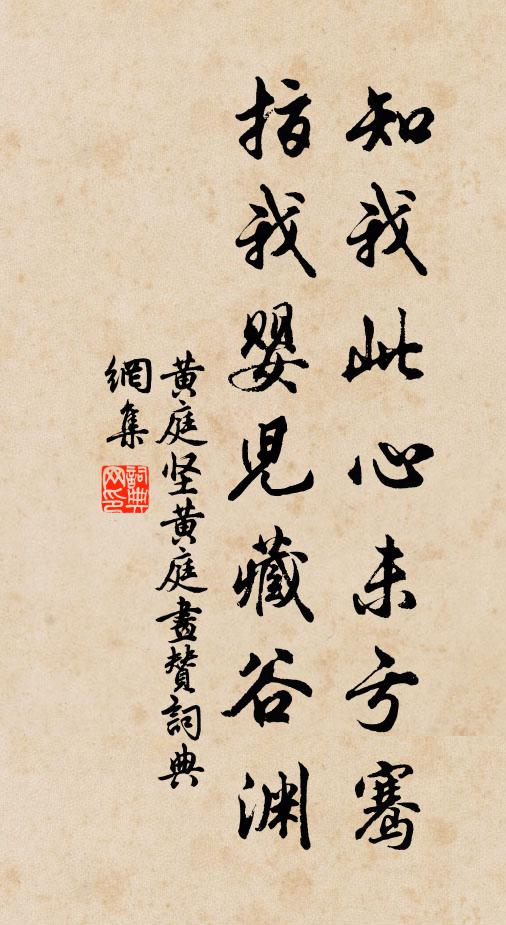 知我此心未亏骞
指我婴儿藏谷渊
黄庭坚黄庭画赞词典
網集
詞典
网印